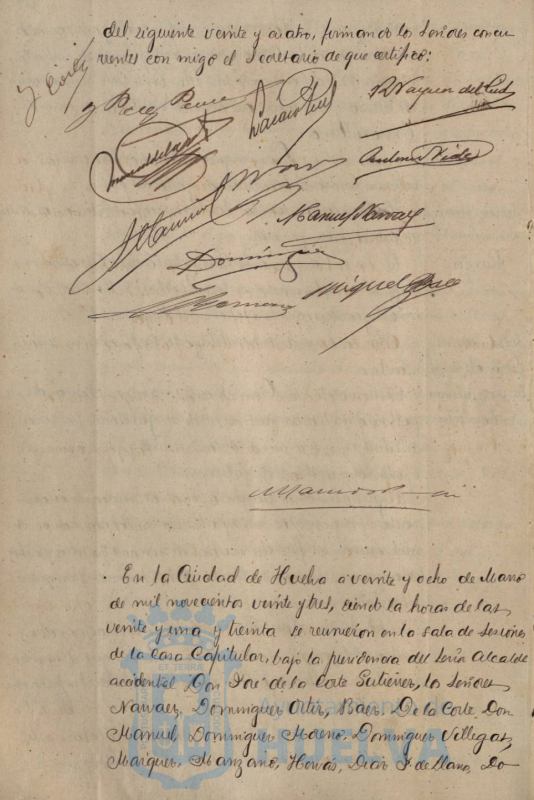 del siguiente veinte y cuatro, firmando los Señores concu-
rrentes con migo el Secretario de que certifico:
Manuel Narvaez
Dominguez
Miguel Baez
En la Ciudad de Huelva a veinte y ocho de Marzo
de mil novecientos veinte y tres, siendo la horas de las
veinte y una y treinta se reunieron en la sala de Sesiones
de la Casa Capitular, bajo la presidencia del Señor Alcalde
accidental Don José de la Corte Gutierrez, los Señores
Narvaez, Dominguez Ortiz, Baez, De la Corte Don
Manuel, Dominguez Moreno, Dominguez Villegas,
Marquez, Manzano, Diaz F. de Llano, Do
HUELVA